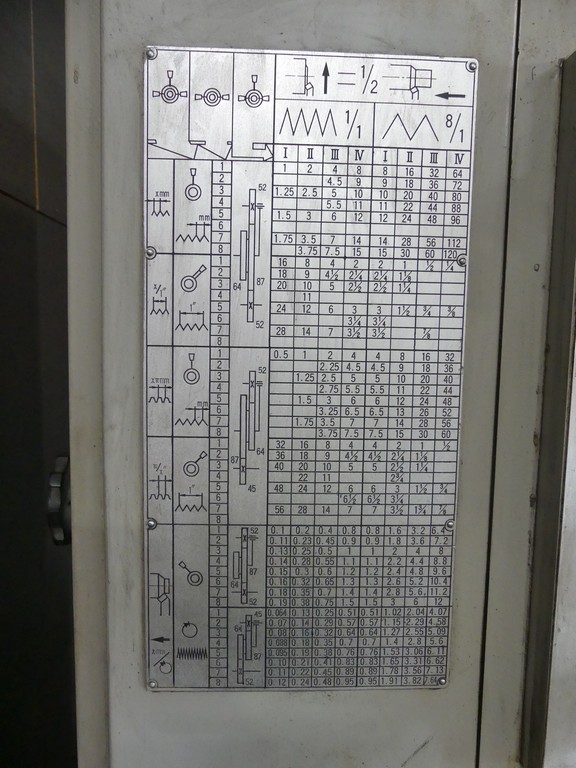 = 1/2
1/1 8/1
I II III IV I II III IV
1 1 2 4 8 8 16 32 64
2 4.5 9 9 18 36 72
3 1.25 2.5 5 10 10 20 40 80
x mm 4 5.5 11 11 22 44 88
5 1.5 3 6 12 12 24 48 96
mm 6
7 1.75 3.5 7 14 14 28 56 112
8 3.75 7.5 15 15 30 60 120
52
87
64
52
1 16 8 4 2 2 1 ½ ¼
2 18 9 4½ 2¼ 2¼ 1⅛
3 20 10 5 2½ 2½ 1¼
x/1" 4 11
1" 5 24 12 6 3 3 1½ ¾ ⅜
6 3¼ 3¼
7 28 14 7 3½ 3½ ⅞
8
1 0.5 1 2 4 4 8 16 32
2 2.25 4.5 4.5 9 18 36
3 1.25 2.5 5 5 10 20 40
4 2.75 5.5 5.5 11 22 44
5 1.5 3 6 6 12 24 48
mm 6 3.25 6.5 6.5 13 26 52
7 1.75 3.5 7 7 14 28 56
8 3.75 7.5 7.5 15 30 60
52
64
87
45
1 32 16 8 4 4 2 1 ½
2 36 18 9 4½ 4½ 2¼ 1⅛
3 40 20 10 5 5 2½ 1¼
4 22 11 2¾
1" 5 48 24 12 6 6 3 1½ ¾
6 6½ 6½ 3¼
7 56 28 14 7 7 3½ 1¾ ⅞
8
1 0.1 0.2 0.4 0.8 0.8 1.6 3.2 6.4
2 0.11 0.23 0.45 0.9 0.9 1.8 3.6 7.2
3 0.13 0.25 0.5 1 1 2 4 8
4 0.14 0.28 0.55 1.1 1.1 2.2 4.4 8.8
5 0.15 0.3 0.6 1.2 1.2 2.4 4.8 9.6
6 0.16 0.32 0.65 1.3 1.3 2.6 5.2 10.4
7 0.18 0.35 0.7 1.4 1.4 2.8 5.6 11.2
8 0.19 0.38 0.75 1.5 1.5 3 6 12
52
87
64
1 0.064 0.13 0.25 0.51 0.51 1.02 2.04 4.07
2 0.07 0.14 0.29 0.57 0.57 1.15 2.29 4.58
3 0.08 0.16 0.32 0.64 0.64 1.27 2.55 5.09
4 0.088 0.18 0.35 0.7 0.7 1.4 2.8 5.6
5 0.095 0.19 0.38 0.76 0.76 1.53 3.06 6.11
6 0.10 0.21 0.41 0.83 0.83 1.65 3.31 6.62
7 0.11 0.22 0.45 0.89 0.89 1.78 3.56 7.13
8 0.12 0.24 0.48 0.95 0.95 1.91 3.82 7.64
45
64
87
52